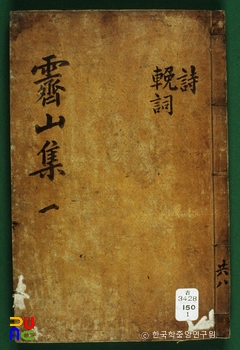 詩
輓詞
霽山集 一
共八
3428
150
1
© 한국학중앙연구원